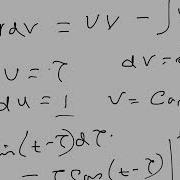 dv = UV - ∫
U = τ dv =
du = 1 V = Cos
in(t-τ)dτ.
= τ Cos(t-τ)|